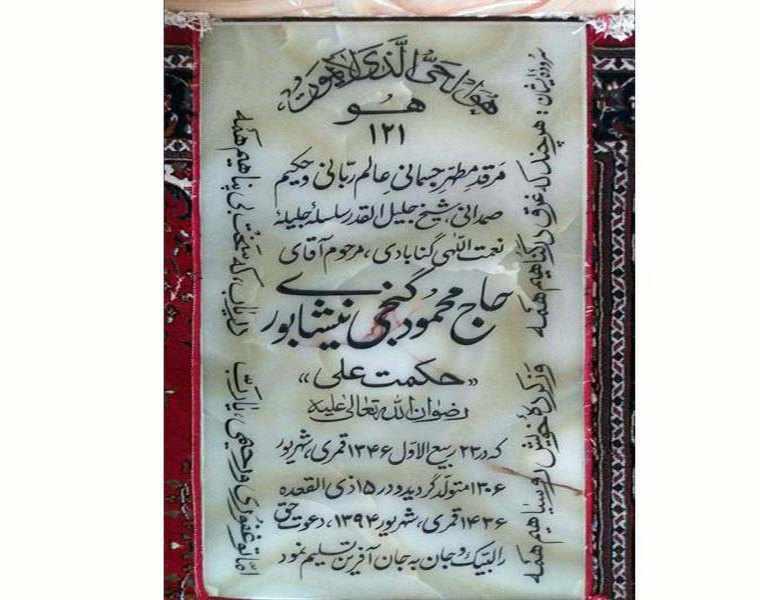 هو الحی الّذی لایموت
هو
۱۲۱
مرقد مطهّر جسمانی عالم ربّانی و حکیم
صمدانی، شیخ جلیل القدر سلسلهٔ جلیلهٔ
نعمت اللّهی گنابادی، مرحوم آقای
حاج محمود گنجی نیشابوری
«حکمت علی»
رضوان الله تعالی علیه
که در ۲۳ ربیع الاوّل ۱۳۴۶ قمری، شهریور
۱۳۰۶ متولّد گردید و در ۱۵ ذی القعده
۱۴۳۶ قمری، شهریور ۱۳۹۴، دعوت حق
را لبّیک و جان به جان آفرین تسلیم نمود
سرودهٔ ایشان: هر چند که غرق در گناهیم همه
وز کردهٔ خویش روسیاهیم همه
امّا تو غفوری و رحیمی، یا ربّ
دریاب، که سخت بی پناهیم همه